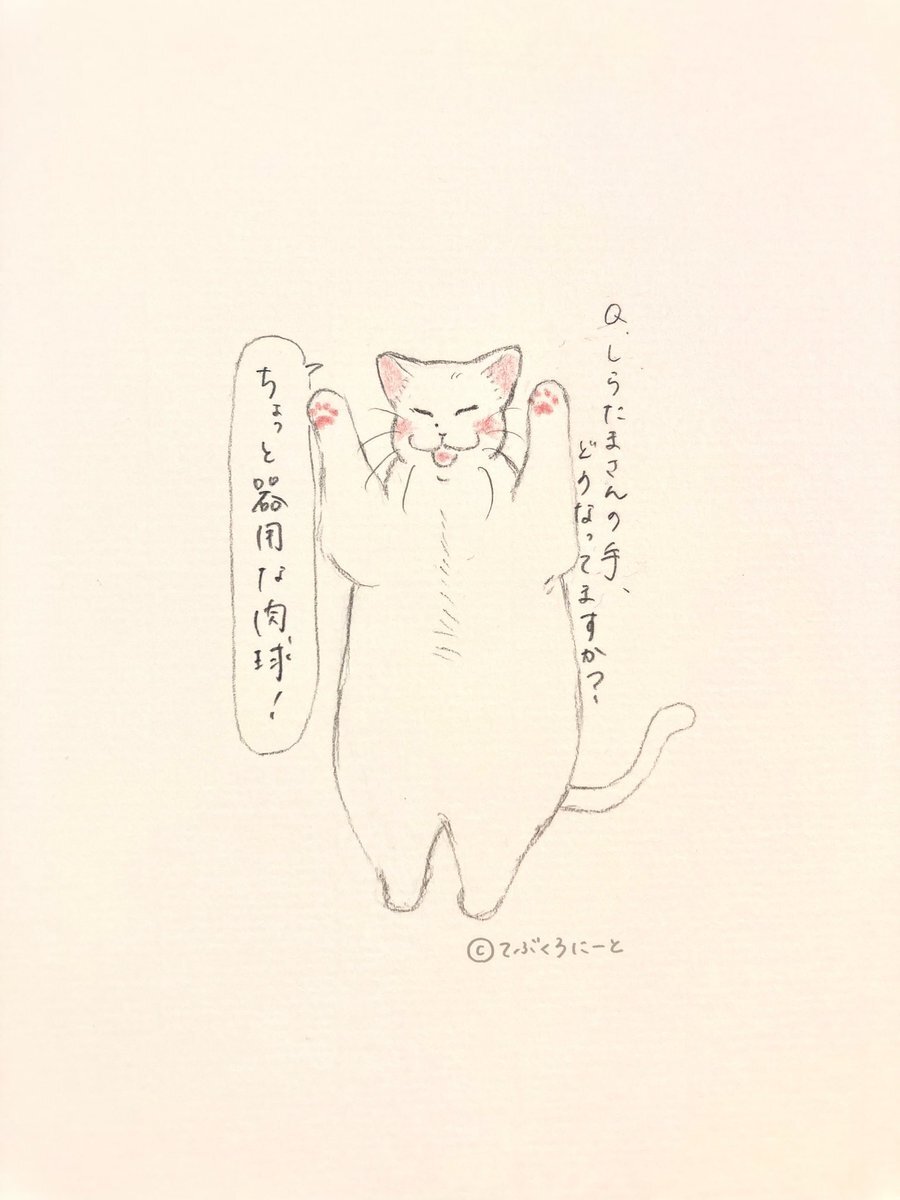 Q.しらたまさんの手、
どうなってますか?
ちょっと器用な肉球!
©てぶくろにーと